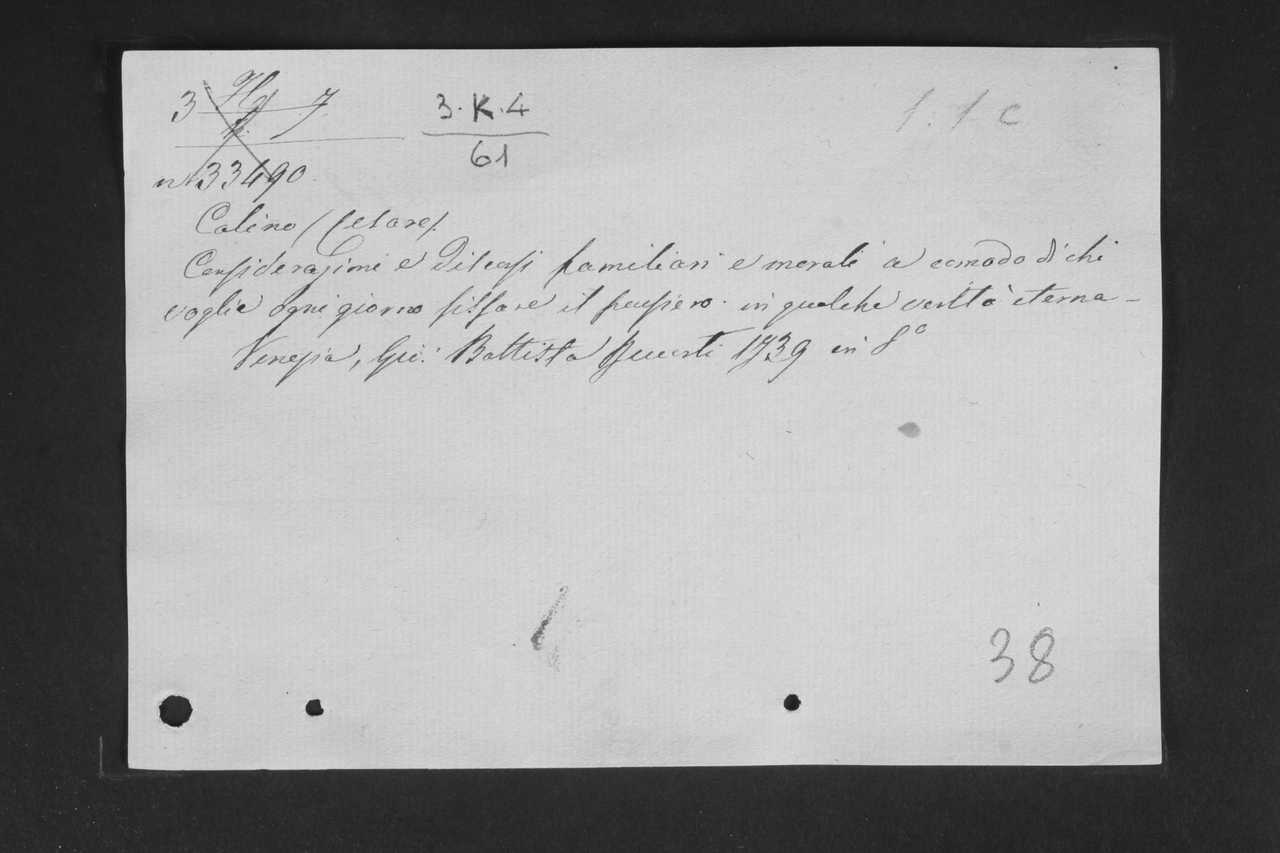 3 7
3.K.4
61
1.1 c
nº 33490
Calino (Cesare).
Considerazioni e Discorsi familiari e morali a comodo di chi
voglia ogni giorno fissare il pensiero in qualche verità eterna –
Venezia, Gio: Battista Recurti 1739 in 8º
38